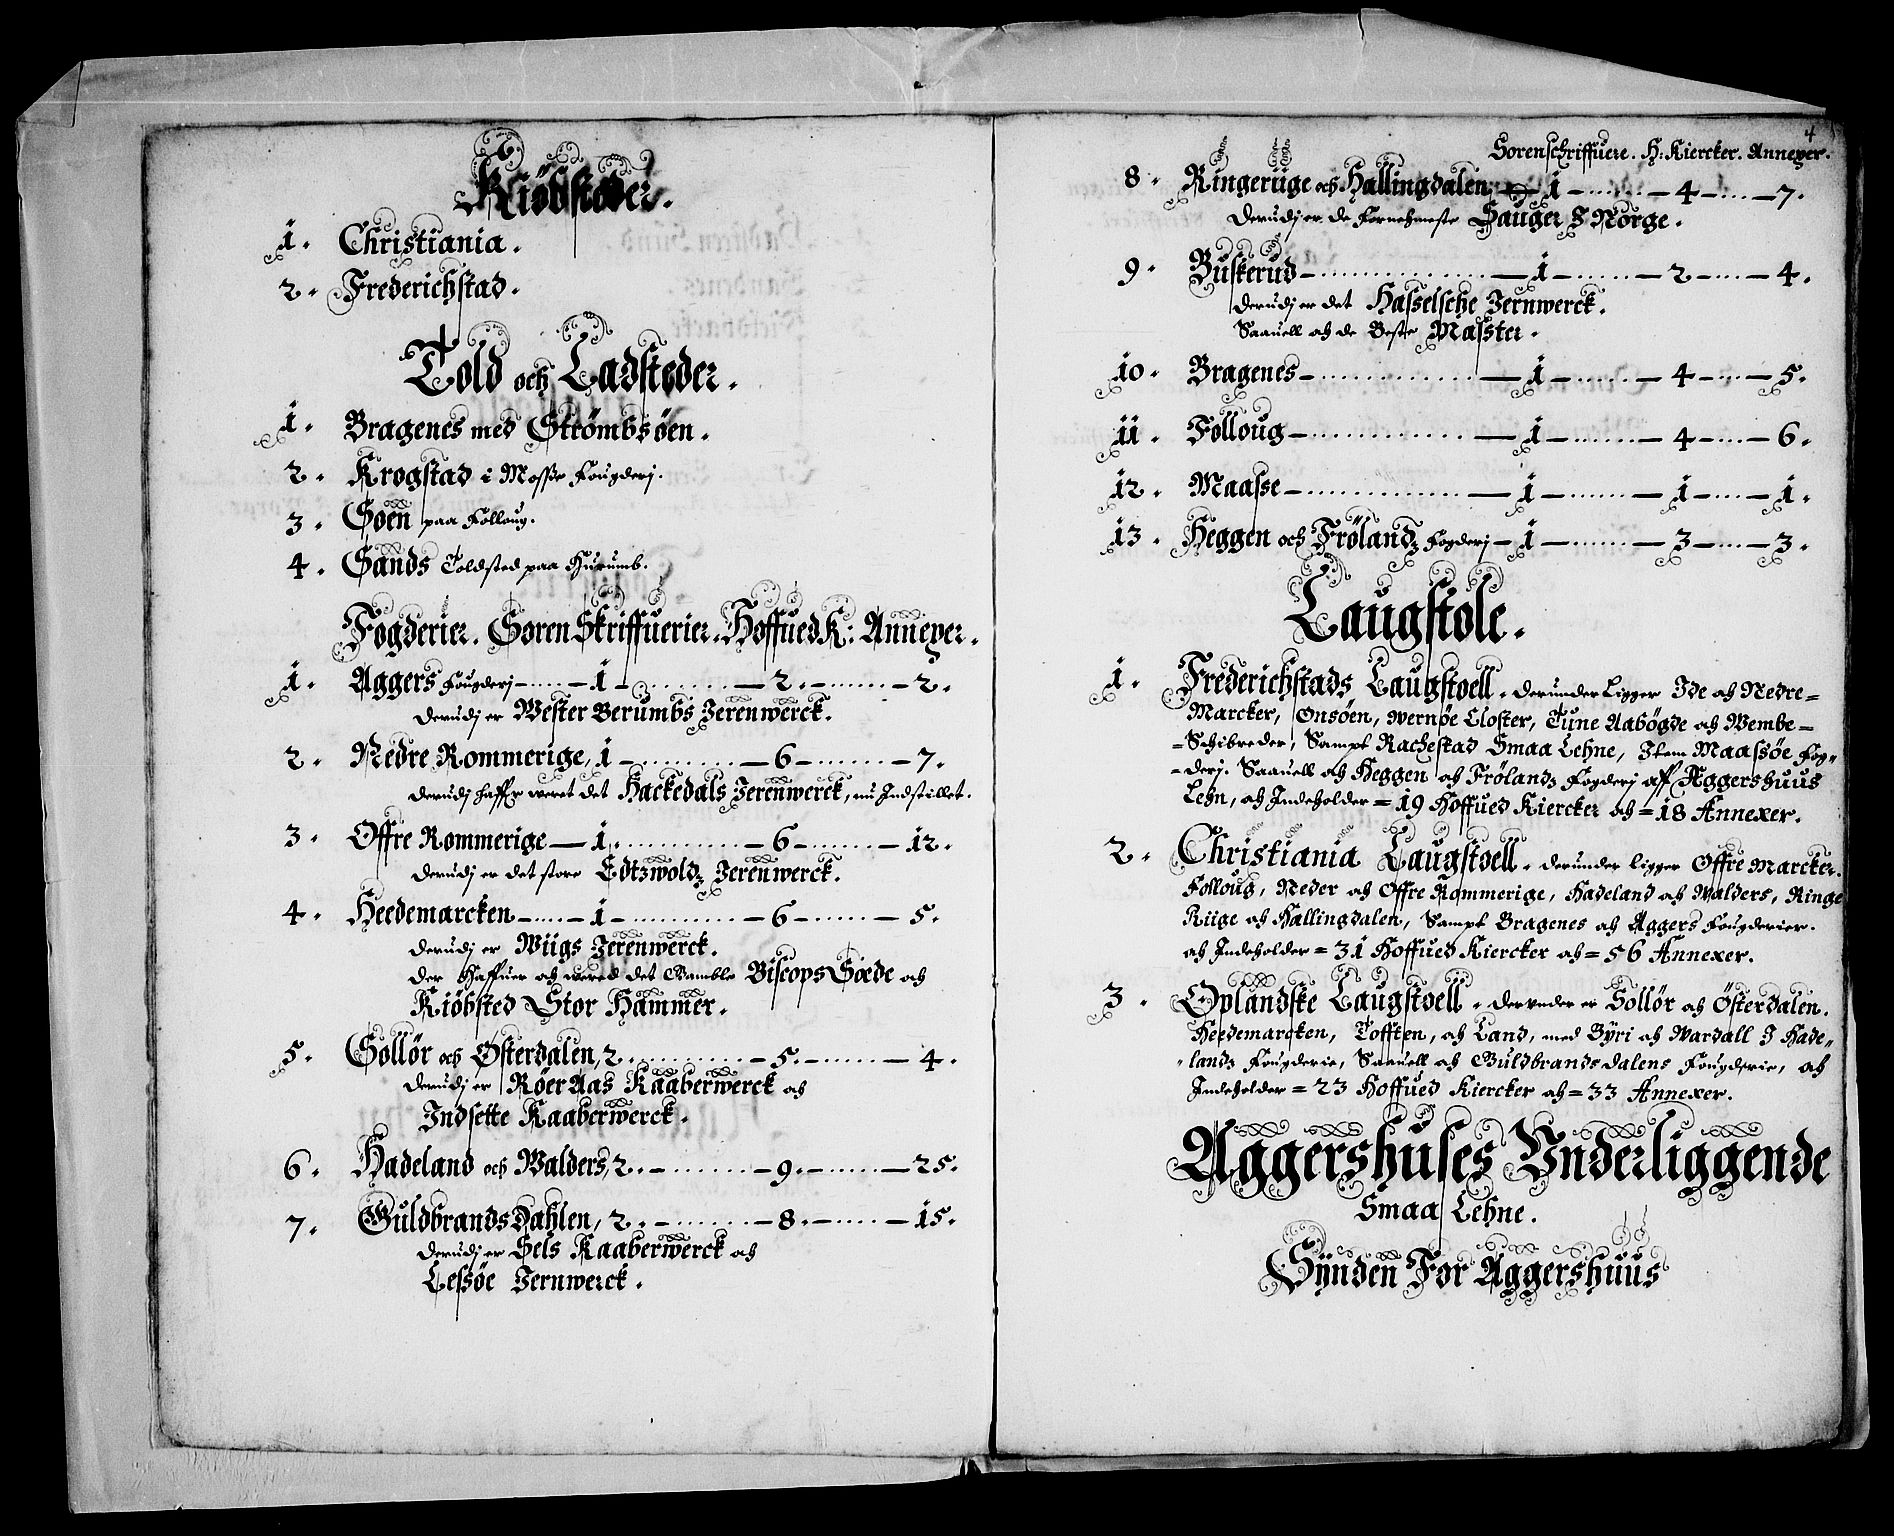 Kiöbsteder.
1. Christiania.
2. Frederichstad.
Told och Ladsteder.
1. Bragenes med Strömbsöen.
2. Krogstad i Mosse Fougderj.
3. Soen paa Folloug.
4. Sands Toldsted paa Hurumb.
Fogderier. SorenSkriffuerier. Hoffued K: Annexer.
1. Aggers Fougderj - 1 - 2 - 2.
derudj er Wester Berumbs Jerenwerck.
2. Nedre Rommerige, 1 - 6 - 7.
derudj haffr weret det Hackedals Jerenwerck, nu Indstillet.
3. Offre Rommerige - 1 - 6 - 12.
derudj er det store Edtzwoldz Jerenwerck.
4. Heedemarcken - 1 - 6 - 5.
derudj er Wiigs Jerenwerck.
der haffuer och wered det Gamble Biscops Sæde och
Kiöbsted Stor Hammer.
5. Sollör och Østerdalen, 2. - 5. - 4.
derudj er Röer Aas Kaaberwerck och
Indsette Kaaberwerck.
6. Hadeland och Walders, 2. - 9. - 25.
7. Guldbrands Dahlen, 2. - 8. - 15.
derudj er Sels Kaaberwerck och
Lessöe Jernwerck.
4
Sorenschriffuere. H: Kiercker. Annexer.
8. Ringeriige och Hallingdalen - 1 - 4 - 7.
derudj er de Fornehmeste Sauger J Norge.
9. Buskerud - 1 - 2 - 4.
derudj er det Hasselsche Jernwerck.
Saauell och de Beste Masster.
10. Bragenes - 1 - 4 - 5.
11. Folloug - 1 - 4 - 6.
12. Maasse - 1 - 1 - 1.
13. Heggen och Frölandz Fogderj - 1 - 3 - 3.
Laugstole.
1. Frederichstads Laugstoell. derunder Ligger Ide och Nedre=
Marcker, Onsöen, Wernöe Closter, Tune Aabögde och Wembe=
=Schibreder, Sampt Rachestad Smaa Lehne, Item Maassöe Fog=
=derj. Saauell och Heggen och Frölandz Fogderj aff Aggershuus
Lehn, och Indeholder = 19 Hoffued Kiercker och = 18 Annexer.
2. Christiania Laugstoell. derunder ligger Offre Marcker.
Folloug, Neder och Offre Rommerige, Hadeland och Walders, Ringe
Riige och Hallingdalen, Sampt Bragenes och Aggers Fougderier.
och Indeholder = 31 Hoffued Kiercker och = 56 Annexer.
3. Oplandske Laugstoell. derunder er Sollör och Österdalen.
Heedemarcken, Tofften, och Land, med Byri och Wardall J Hade=
=landz Fougderie, Saauell och Guldbrandsdalens Fougderie, och
Indeholder = 23 Hoffued Kiercker och = 33 Annexer.
Aggershuses Vnderliggende
Smaa Lehne.
Synden For Aggershuus